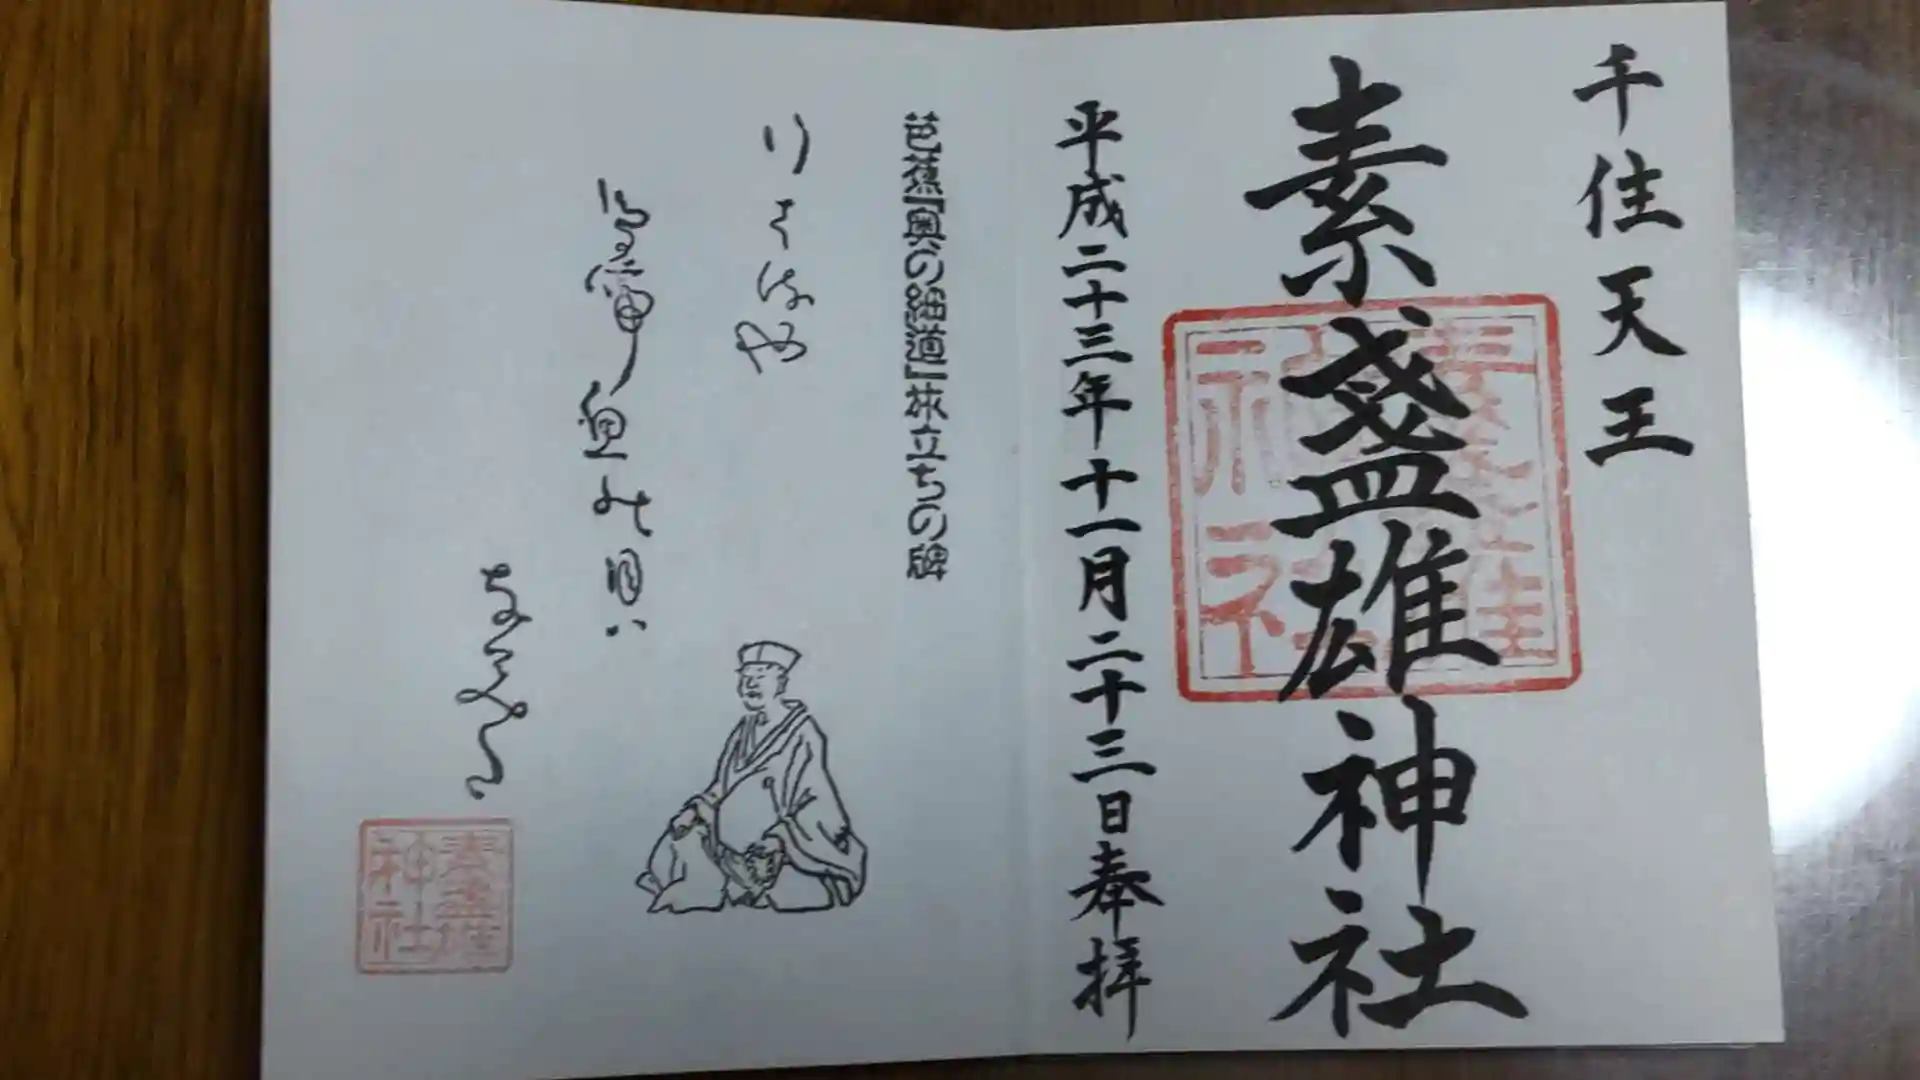 千住天王
素盞雄神社
平成二十三年十一月二十三日奉拝
芭蕉『奥の細道』旅立ちの碑
行はるや
鳥啼魚の目ハ
なみだ
素盞雄
神社